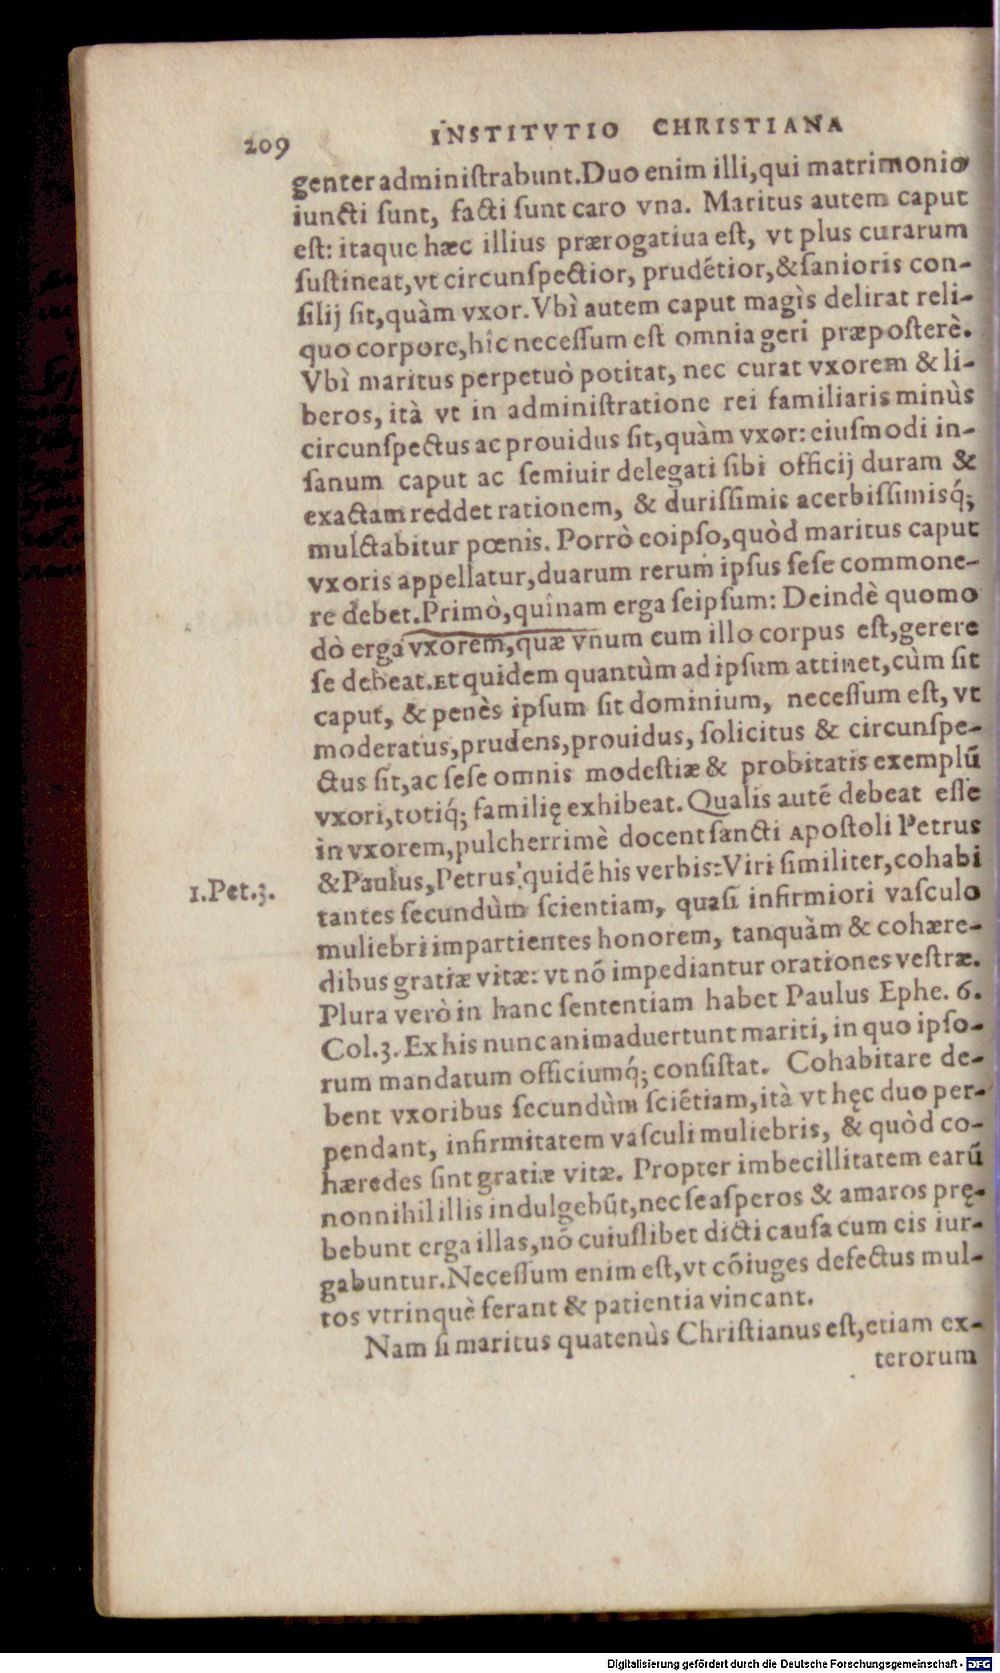 209
INSTITVTIO CHRISTIANA
genter adminiſtrabunt. Duo enim illi, qui matrimonio
iuncti ſunt, facti ſunt caro vna. Maritus autem caput
eſt: itaque hæc illius prærogatiua eſt, vt plus curarum
ſuſtineat, vt circunſpectior, prudẽtior, & ſanioris con-
ſilij ſit, quàm vxor. Vbì autem caput magìs delirat reli-
quo corpore, hîc neceſſum eſt omnia geri præpoſterè.
Vbì maritus perpetuò potitat, nec curat vxorem & li-
beros, ità vt in adminiſtratione rei familiaris minùs
circunſpectus ac prouidus ſit, quàm vxor: eiuſmodi in-
ſanum caput ac ſemiuir delegati ſibi officij duram &
exactam reddet rationem, & duriſſimis acerbiſſimisq́;
mulctabitur pœnis. Porrò eoipſo, quòd maritus caput
vxoris appellatur, duarum rerum ipſus ſeſe commone-
re debet. Primò, quînam erga ſeipſum: Deindè quomo
dò erga vxorem, quæ vnum cum illo corpus eſt, gerere
ſe debeat. Et quidem quantùm ad ipſum attinet, cùm ſit
caput, & penès ipſum ſit dominium, neceſſum eſt, vt
moderatus, prudens, prouidus, ſolicitus & circunſpe-
ctus ſit, ac ſeſe omnis modeſtiæ & probitatis exemplũ
vxori, totiq́; familię exhibeat. Qualis autẽ debeat eſſe
in vxorem, pulcherrimè docent ſancti Apoſtoli Petrus
& Paulus, Petrus quidẽ his verbis: Viri ſimiliter, cohabi
1. Pet. 3.
tantes ſecundùm ſcientiam, quaſi infirmiori vaſculo
muliebri impartientes honorem, tanquàm & cohære-
dibus gratiæ vitæ: vt nõ impediantur orationes veſtræ.
Plura verò in hanc ſententiam habet Paulus Ephe. 6.
Col. 3. Ex his nunc animaduertunt mariti, in quo ipſo-
rum mandatum officiumq́; conſiſtat. Cohabitare de-
bent vxoribus ſecundùm ſciẽtiam, ità vt hęc duo per-
pendant, infirmitatem vaſculi muliebris, & quòd co-
hæredes ſint gratiæ vitæ. Propter imbecillitatem earũ
nonnihil illis indulgebũt, nec ſe aſperos & amaros prę-
bebunt erga illas, nõ cuiuſlibet dicti cauſa cum eis iur-
gabuntur. Neceſſum enim eſt, vt cõiuges defectus mul-
tos vtrinquè ferant & patientia vincant.
Nam ſi maritus quatenùs Chriſtianus eſt, etiam ex-
terorum
Digitalisierung gefördert durch die Deutsche Forschungsgemeinschaft - DFG